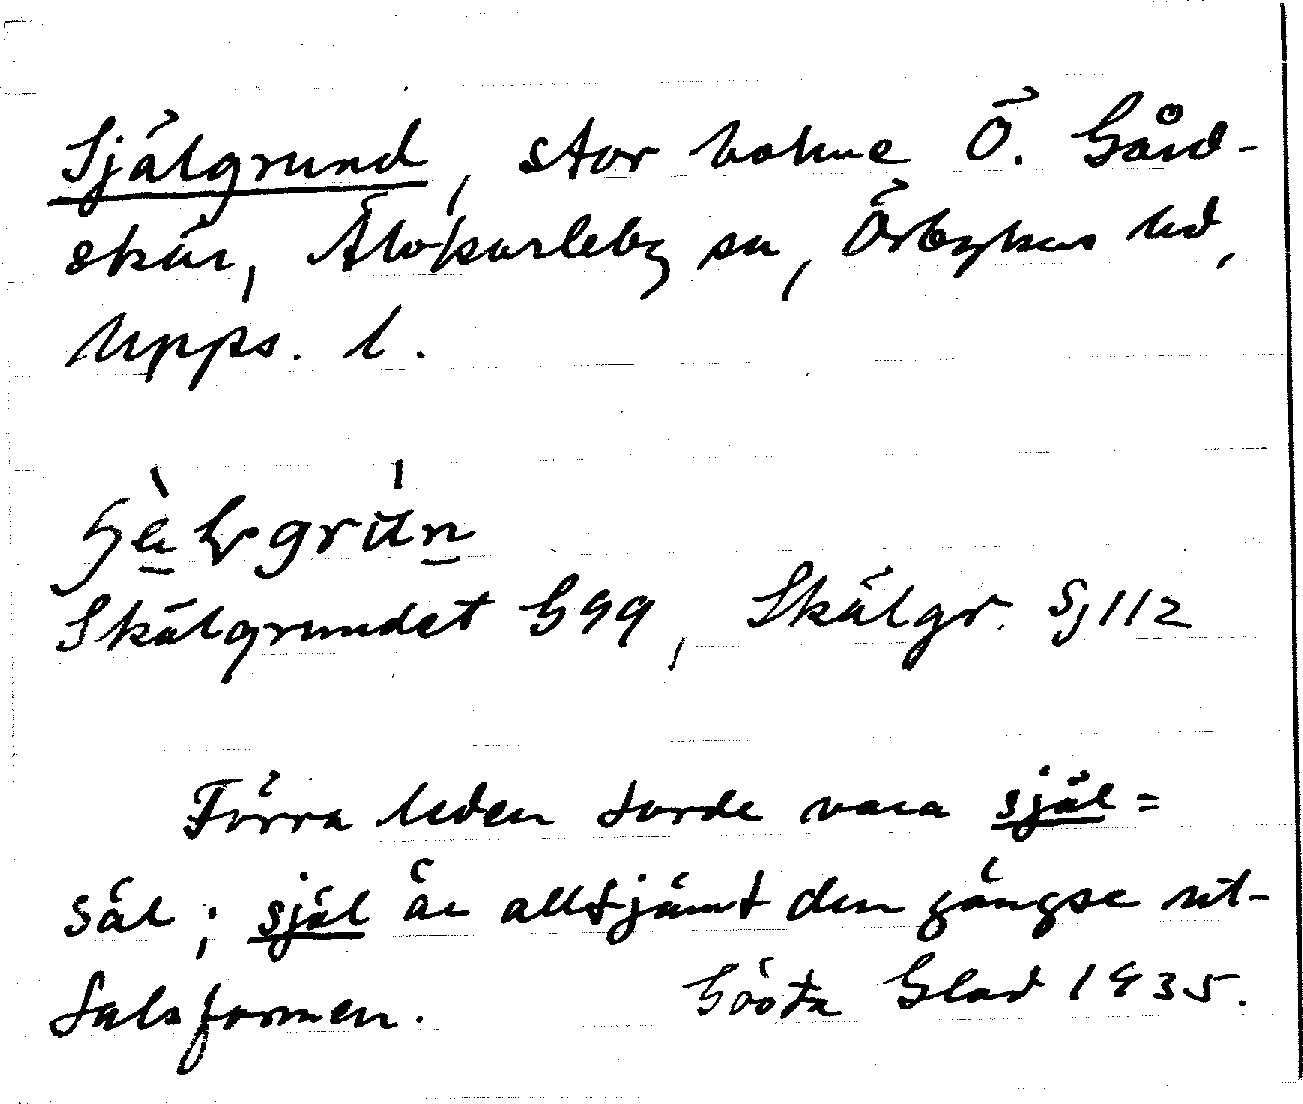 Själgrund, stor båkne Ö. Gård-
skär, Älvkarleby sn, Örbyhus hd,
Upps. l.
Skälgrundet G99, Skälgr. Sj112
Förra leden torde vara själ=
säl; själ är alltjämt den gängse ut-
talsformen. Gösta Glad 1935.